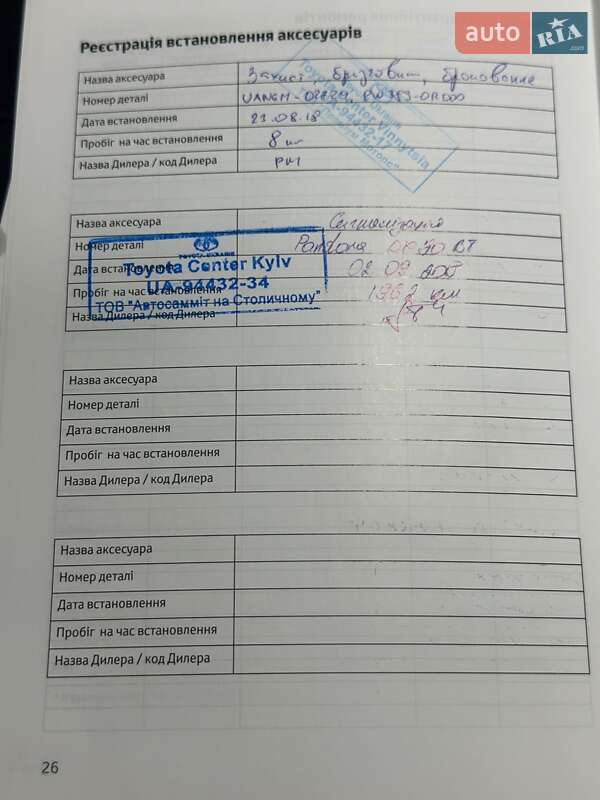 auto
RIA
.com
Реєстрація встановлення аксесуарів
Назва аксесуара Захист, бризговики,
Номер деталі PW3F3-0R000
Дата встановлення 23.08.18
Пробіг на час встановлення 8 км
Назва Дилера / код Дилера
Назва аксесуара Сигналізація
Номер деталі Pandora BT
Дата встановлення 02 09
Пробіг на час встановлення км
Назва Дилера / код Дилера
TOYOTA-UKRAINE
Toyota Center Kyiv
UA-94432-34
ТОВ "Автосамміт на Столичному"
Назва аксесуара
Номер деталі
Дата встановлення
Пробіг на час встановлення
Назва Дилера / код Дилера
Назва аксесуара
Номер деталі
Дата встановлення
Пробіг на час встановлення
Назва Дилера / код Дилера
26